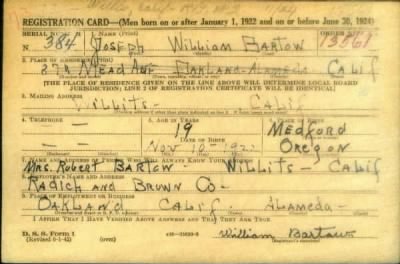 REGISTRATION CARD—(Men born on or after January 1, 1922 and on or before June 30, 1924)
SERIAL NUMBER 1. NAME (Print) ORDER NUMBER
N 384 Joseph William Bartow 13561
2. PLACE OF RESIDENCE (Print)
Mead Ave Oakland Alameda Calif
[THE PLACE OF RESIDENCE GIVEN ON THE LINE ABOVE WILL DETERMINE LOCAL BOARD
JURISDICTION; LINE 2 OF REGISTRATION CERTIFICATE WILL BE IDENTICAL]
3. MAILING ADDRESS
Willits - Calif
4. TELEPHONE 5. AGE IN YEARS 6. PLACE OF BIRTH
— 19 Medford
DATE OF BIRTH
— Nov 10 Oregon
7. NAME AND ADDRESS OF PERSON WHO WILL ALWAYS KNOW YOUR ADDRESS
Mrs. Robert Bartow - Willits - Calif
8. EMPLOYER'S NAME AND ADDRESS
Radich and Brown Co -
9. PLACE OF EMPLOYMENT OR BUSINESS
Oakland Calif Alameda -
I AFFIRM THAT I HAVE VERIFIED ABOVE ANSWERS AND THAT THEY ARE TRUE.
D. S. S. Form 1
(Revised 6-1-42) (over) William Bartow
(Registrant's signature)